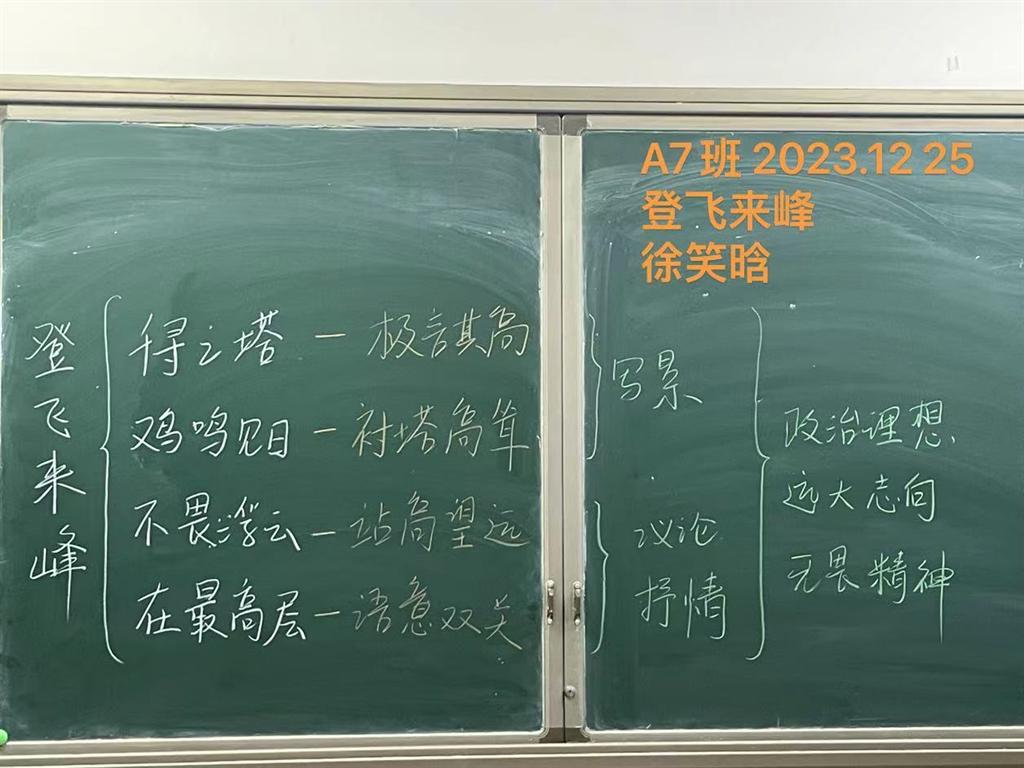 A7班 2023.12 25
登飞来峰
徐笑晗
登飞来峰
得之塔 — 极言其高
鸡鸣见日 — 衬塔高耸
不畏浮云 — 站高望远
在最高层 — 语意双关
写景
议论
抒情
政治理想
远大志向
无畏精神